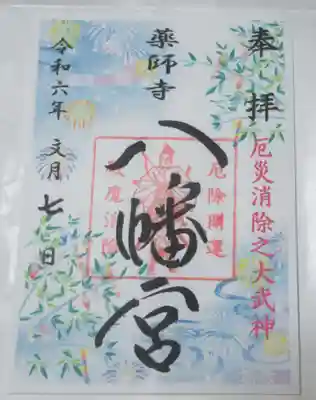 奉拝
厄災消除之大武神
薬師寺
八幡宮
厄除開運
令和六年 文月 七日